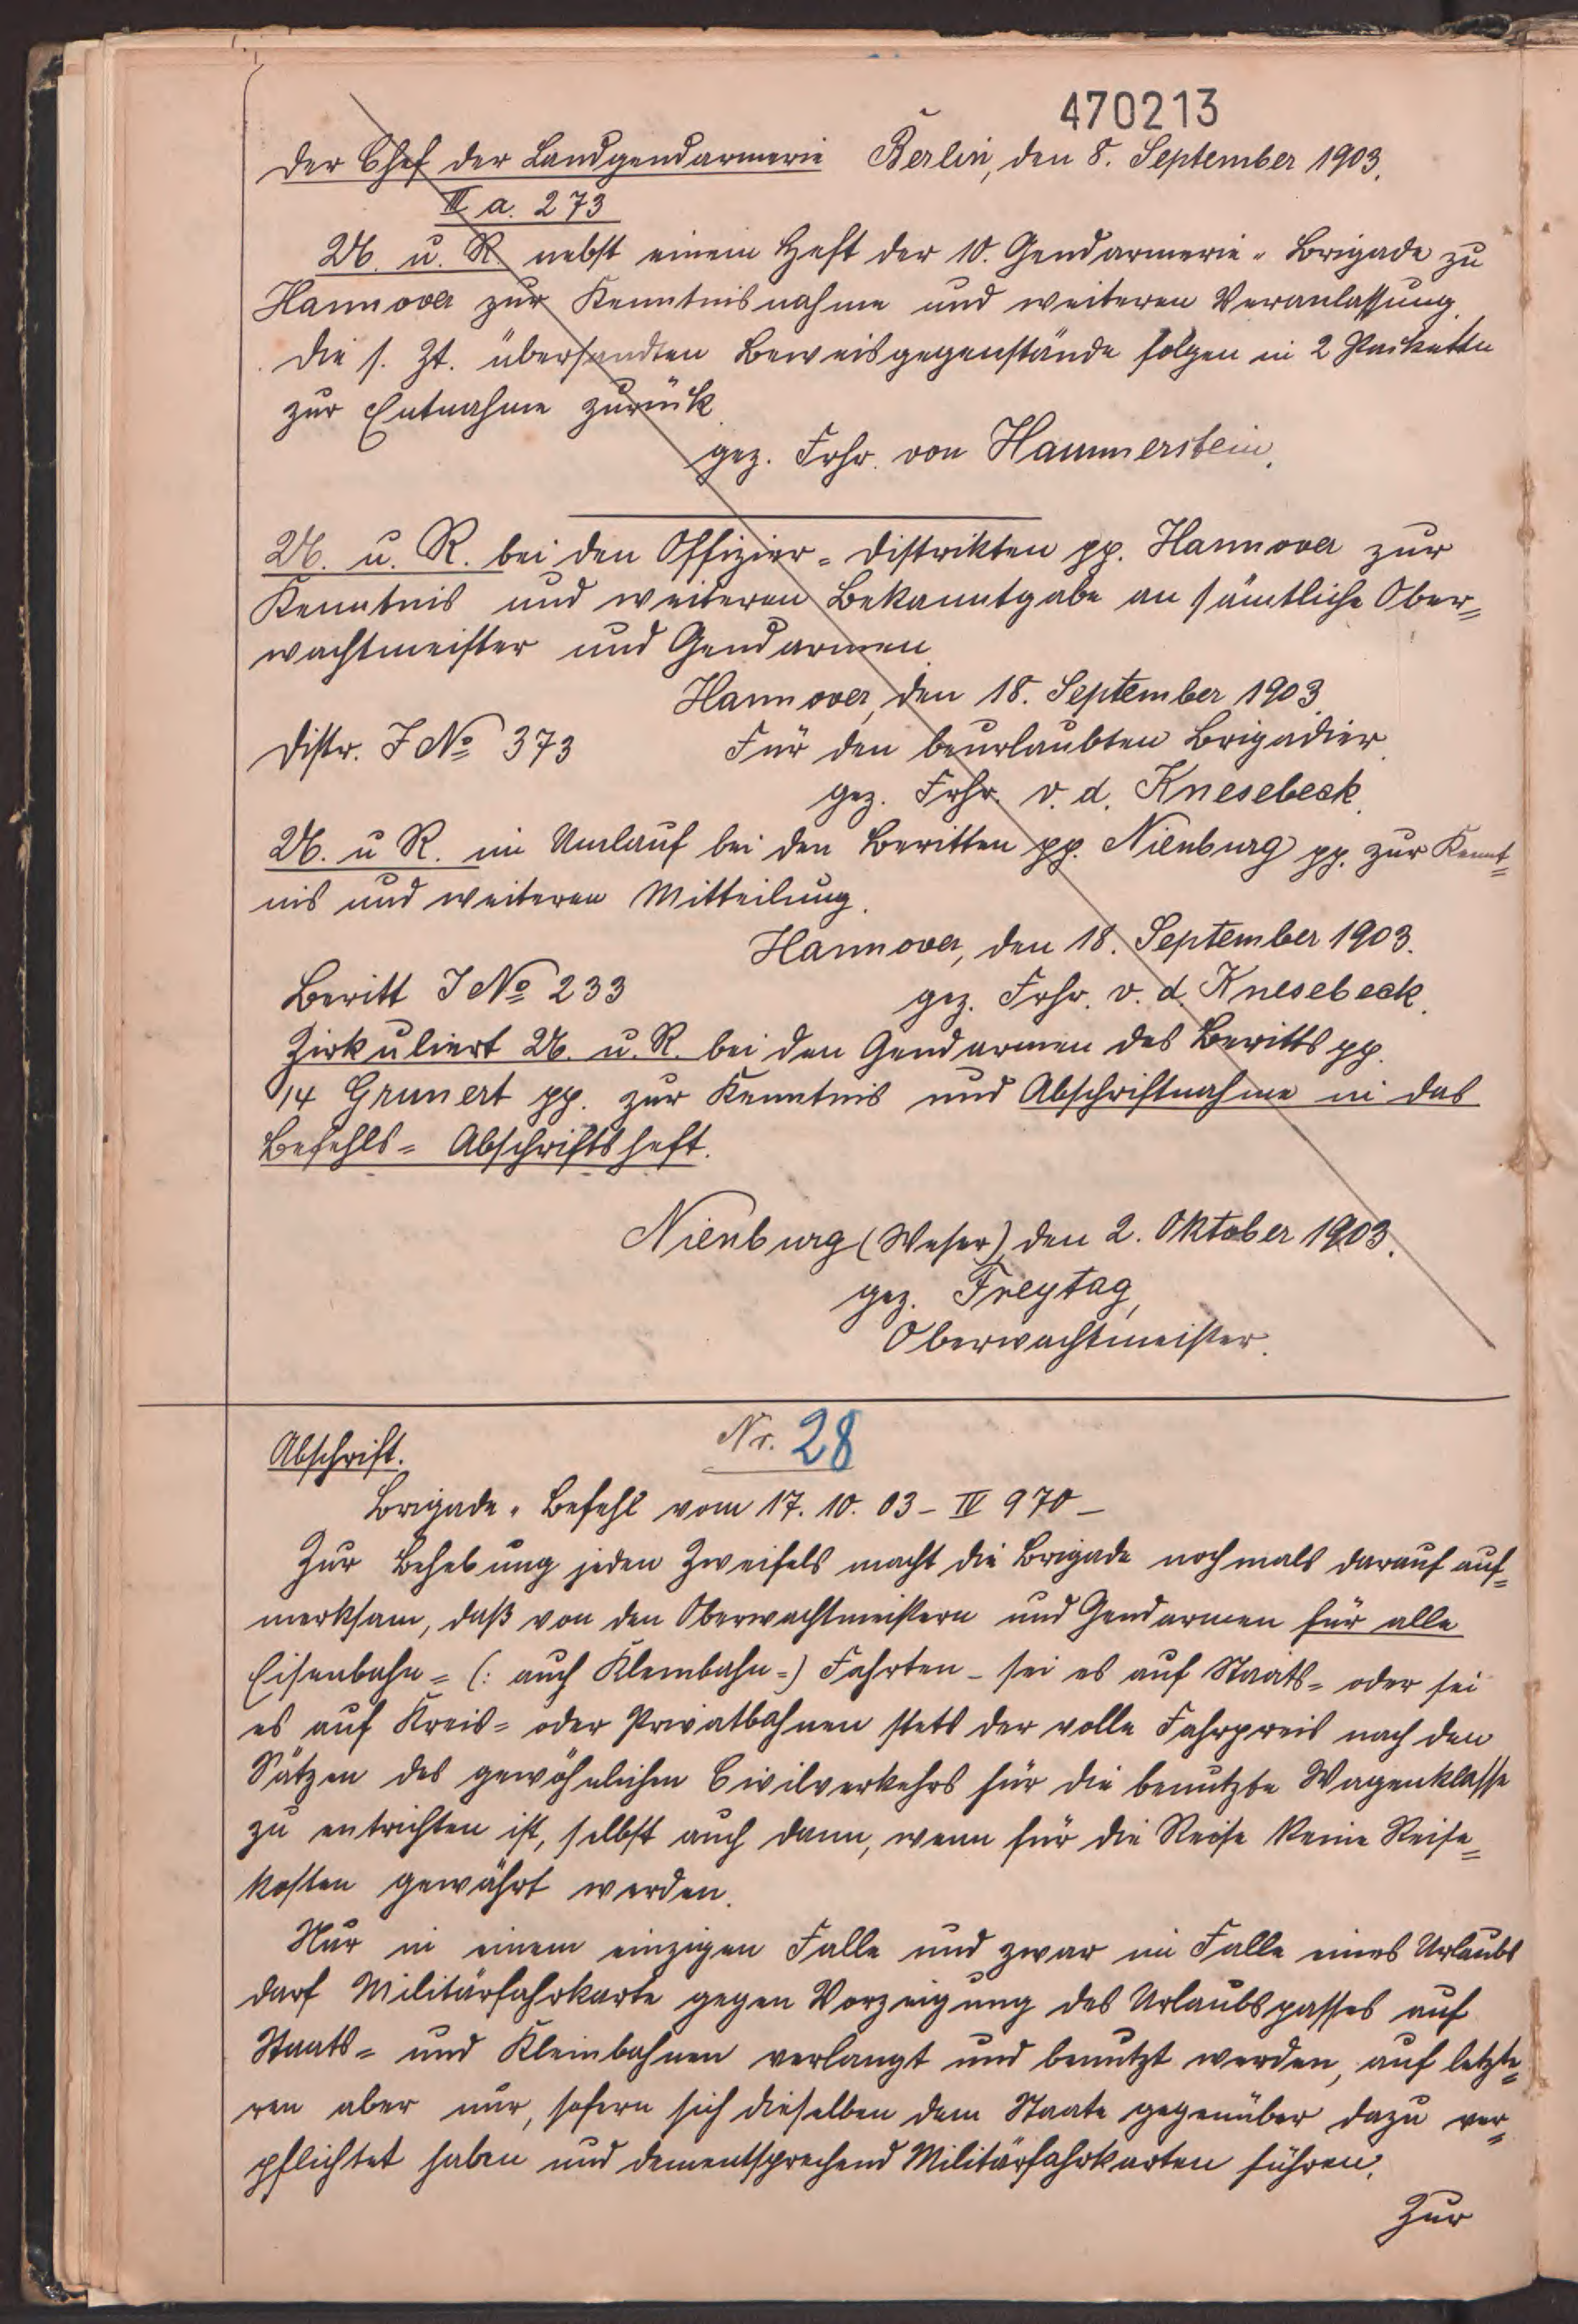 470213
Der Chef der Landgendarmerie Berlin, den 8. September 1903.
III a. 273
U. u. R. nebst einem Heft der 10. Gendarmerie-Brigade zu
Hannover zur Kenntnisnahme und weiteren Veranlassung.
Die s. Zt. übersandten Beweisgegenstände folgen in 2 Packeten
zur Entnahme zurück.
gez. Frhr. von Hammerstein.
U. u. R. bei den Offizier-Distrikten pp. Hannover zur
Kenntnis und weiteren Bekanntgabe an sämtliche Ober=
wachtmeister und Gendarmen.
Hannover, den 18. September 1903.
Distr. J No 373 Für den beurlaubten Brigadier.
gez. Frhr. v. d. Knesebeck.
U. u R. im Umlauf bei den Beritten pp. Nienburg pp. zur Kennt=
nis und weiteren Mitteilung.
Hannover, den 18. September 1903.
Beritt J No 233 gez. Frhr. v. d. Knesebeck.
Zirkuliert U. u. R. bei den Gendarmen des Beritts pp.
14 Grunert pp. zur Kenntnis und Abschriftnahme in das
Befehls= Abschriftsheft.
Nienburg (Weser), den 2. Oktober 1903.
gez. Freytag,
Oberwachtmeister.
Abschrift. Nr. 28
Brigade-Befehl vom 17. 10. 03 - IV 970 -
Zur Behebung jeden Zweifels macht die Brigade nochmals darauf auf=
merksam, daß von den Oberwachtmeistern und Gendarmen für alle
Eisenbahn= (: auch Kleinbahn=) Fahrten - sei es auf Staats= oder sei
es auf Kreis= oder Privatbahnen stets der volle Fahrpreis nach den
Sätzen des gewöhnlichen Civilverkehrs für die benutzte Wagenklasse
zu entrichten ist, selbst auch dann, wenn für die Reise keine Reise=
kosten gewährt werden.
Nur in einem einzigen Falle und zwar im Falle eines Urlaubs
darf Militärfahrkarte gegen Vorzeigung des Urlaubspasses auf
Staats= und Kleinbahnen verlangt und benutzt werden, auf letzte=
ren aber nur, sofern sich dieselben dem Staate gegenüber dazu ver=
pflichtet haben und dementsprechend Militärfahrkarten führen.
Zur